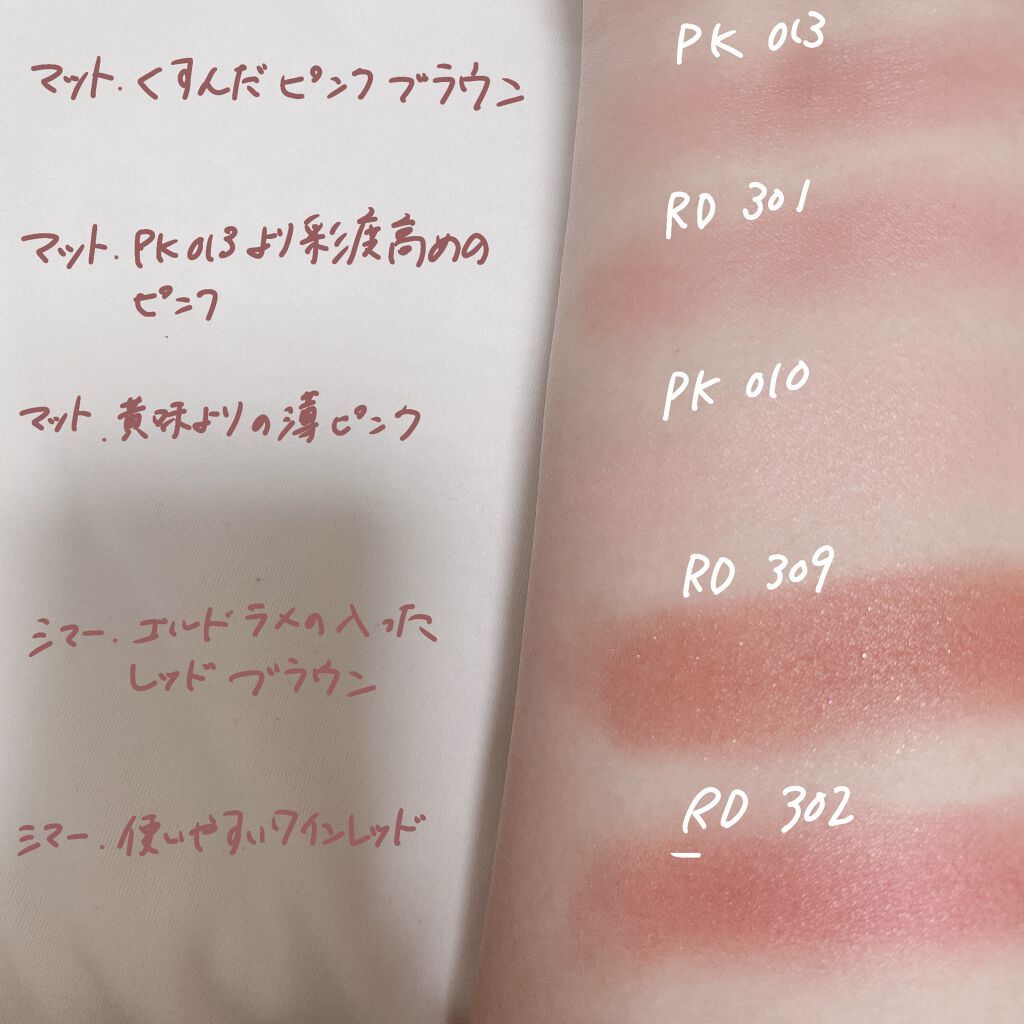 マット. くすんだ ピンク ブラウン
PK 013
マット. PK013 より 彩度高めの
ピンク
RD 301
マット. 黄味よりの薄ピンク
PK 010
シマー. ゴールド ラメの入った
レッド ブラウン
RD 309
シマー. 使いやすいワインレッド
RD 302